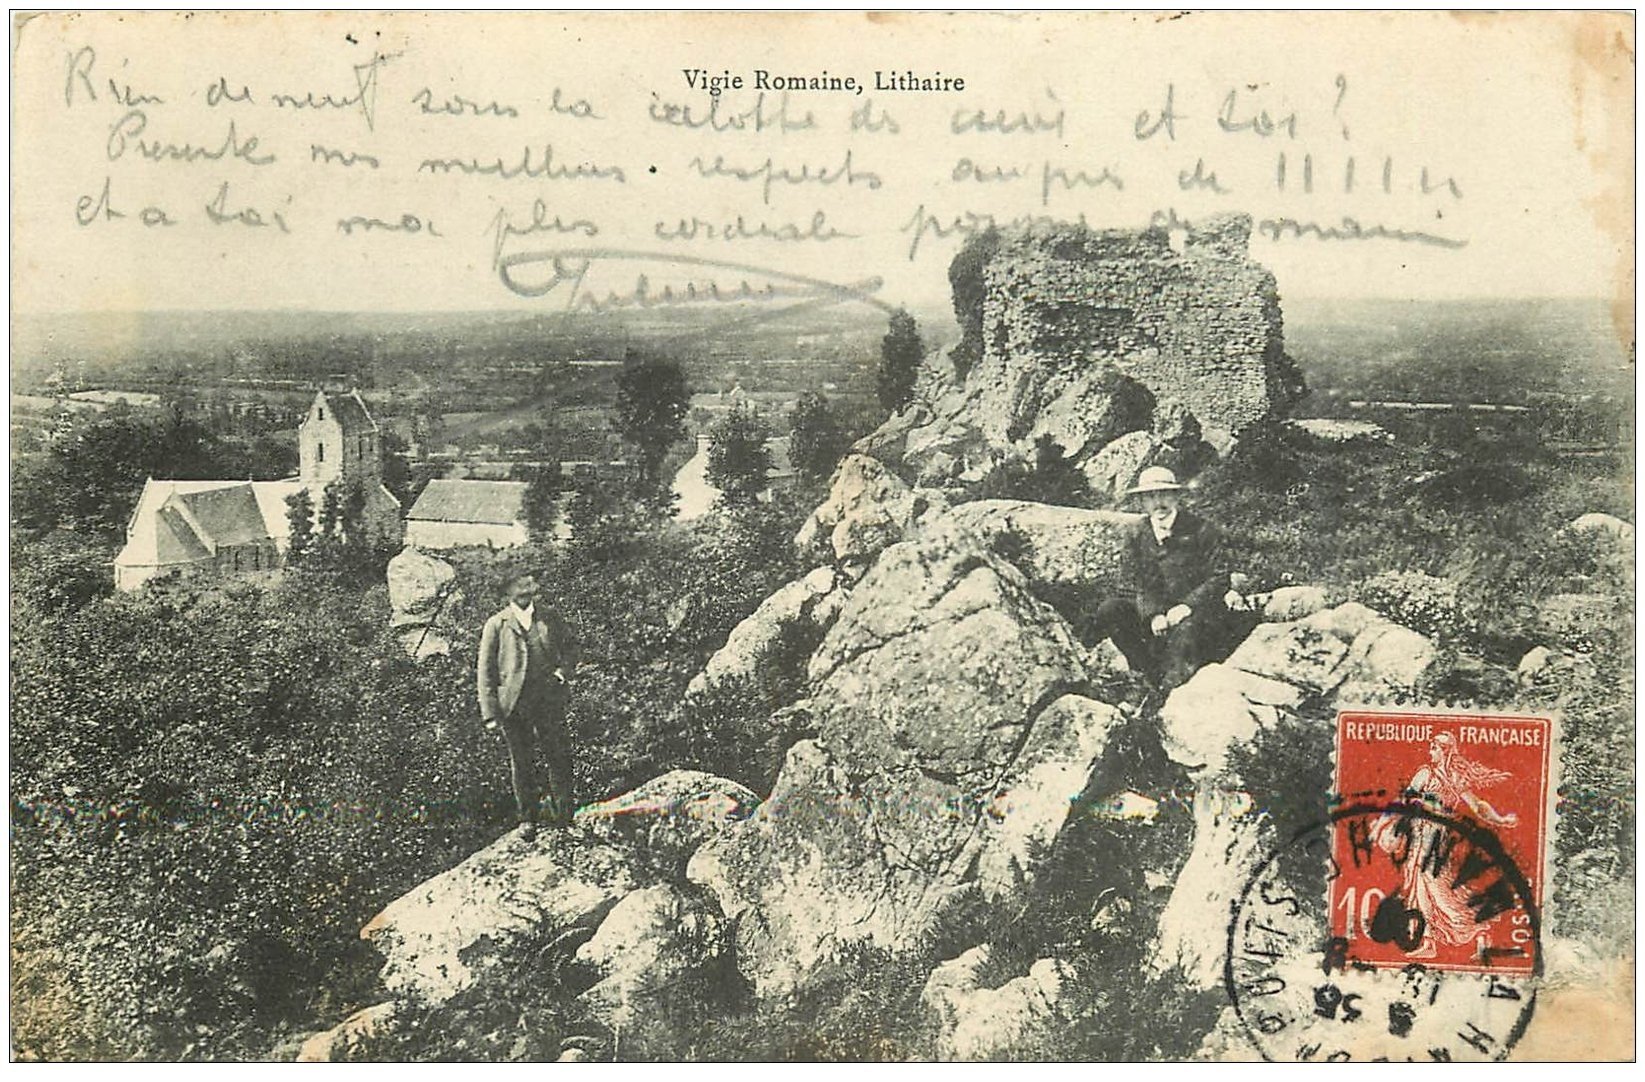 Vigie Romaine, Lithaire
Rien de neuf sous la calotte des cieux et toi ?
Presente mes meilleurs respects aupres de
et a toi ma plus cordiale poignee de main
REPUBLIQUE FRANÇAISE
10
LA HAYE MANCHE